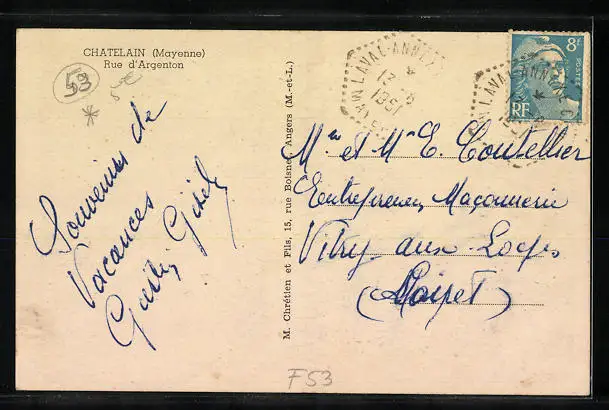 CHATELAIN (Mayenne)
Rue d'Argenton
53
Souvenirs de
Vacances
M. Chrétien et Fils, 15, rue Boisnet, Angers (M.-et-L.)
LAVAL-ANNEXE
13 - 8
1951
8F
POSTES
RF
LAVAL-ANNEXE
Mr et Me E. Coutellier
Entrepreneur Maçonnerie
Vitry aux Loges
(Loiret)
F53